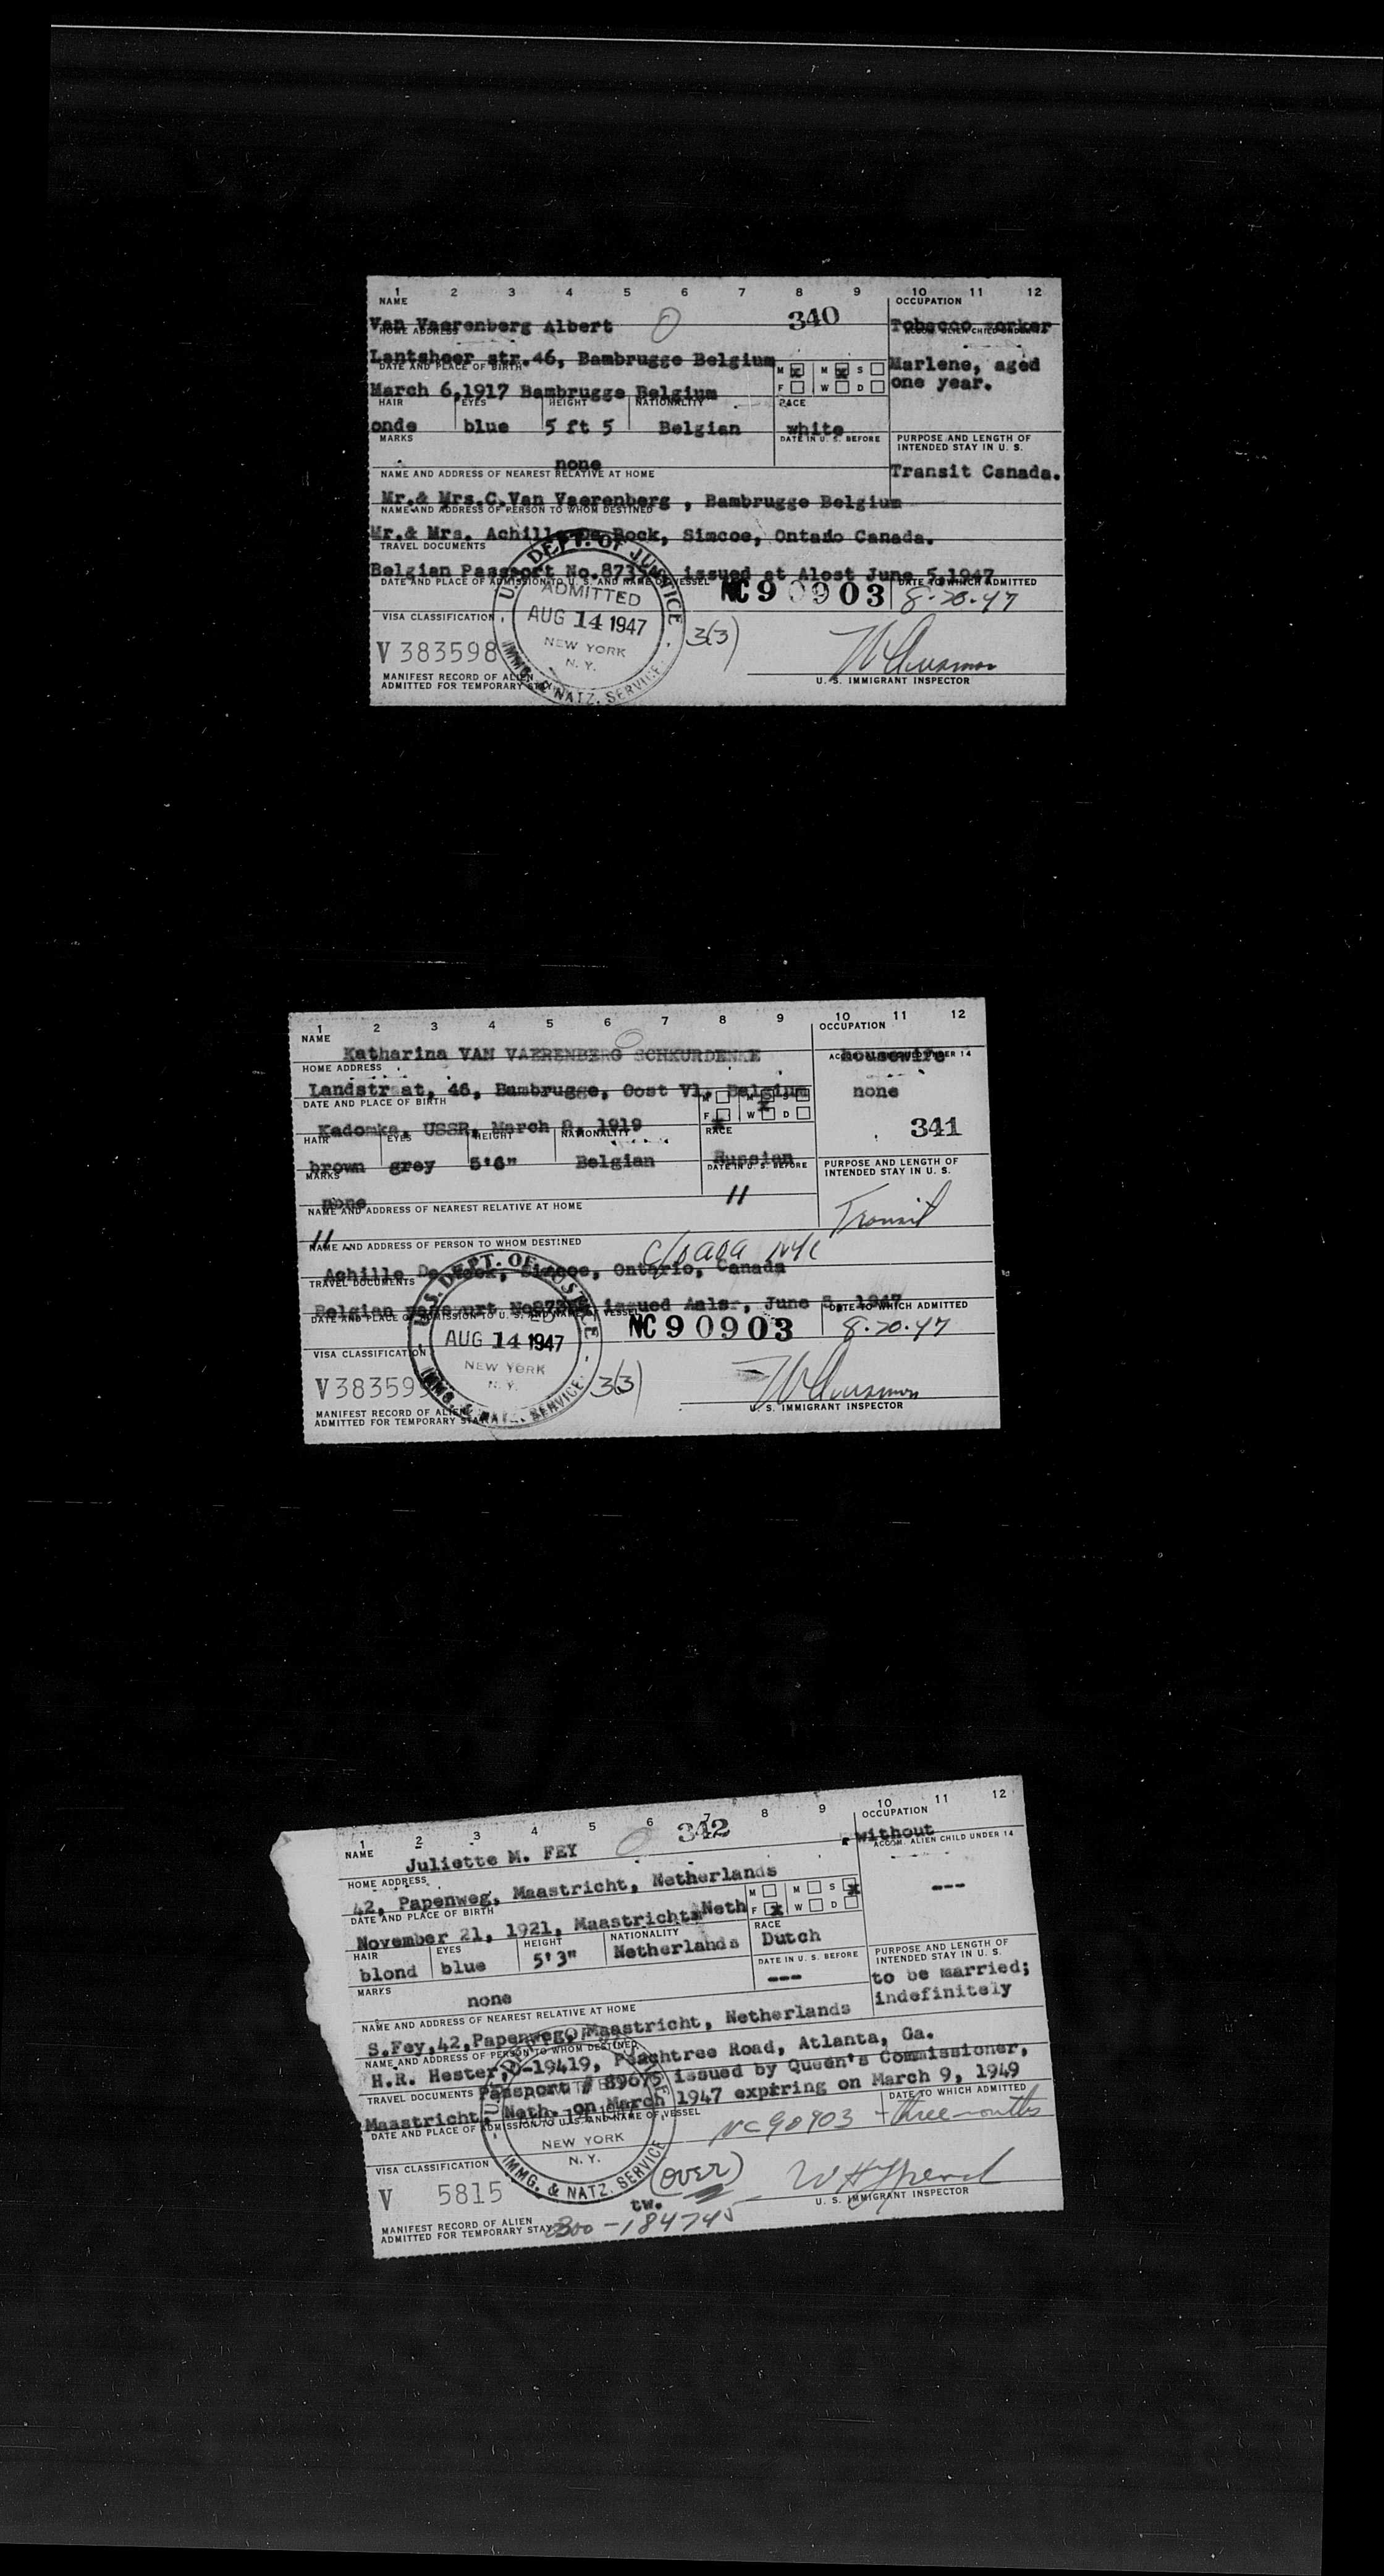 1 2 3 4 5 6 7 8 9 10 11 12
NAME OCCUPATION
Van Vaerenberg Albert 0 340 Tobacco worker
HOME ADDRESS ACCOM. ALIEN CHILD UNDER 14
Lantsheer str.46, Bambrugge Belgium
DATE AND PLACE OF BIRTH M x M x S Marlene, aged
March 6,1917 Bambrugge Belgium F W D one year.
HAIR EYES HEIGHT NATIONALITY RACE
onde blue 5 ft 5 Belgian white
MARKS DATE IN U. S. BEFORE PURPOSE AND LENGTH OF
none INTENDED STAY IN U. S.
NAME AND ADDRESS OF NEAREST RELATIVE AT HOME Transit Canada.
Mr.& Mrs.C.Van Vaerenberg , Bambrugge Belgium
NAME AND ADDRESS OF PERSON TO WHOM DESTINED
Mr.& Mrs. Achille De Bock, Simcoe, Ontario Canada.
TRAVEL DOCUMENTS
Belgian Passport issued at Alost June 5,1947
DATE AND PLACE OF ADMISSION TO U. S. AND NAME OF VESSEL NC 90903 DATE TO WHICH ADMITTED
8-20-47
U.S. DEPT. OF JUSTICE
ADMITTED
AUG 14 1947
NEW YORK
N. Y.
IMMG. & NATZ. SERVICE
VISA CLASSIFICATION 3(3)
V 383598
MANIFEST RECORD OF ALIEN U. S. IMMIGRANT INSPECTOR
ADMITTED FOR TEMPORARY STAY
1 2 3 4 5 6 7 8 9 10 11 12
NAME 0 OCCUPATION
Katharina VAN VAERENBERG SCHKURDENKE housewife
HOME ADDRESS ACCOM. ALIEN CHILD UNDER 14
Landstraat, 46, Bambrugge, Oost Vl. Belgium none
DATE AND PLACE OF BIRTH M M x S
Kadomka, USSR, March 9, 1919 F x W D 341
HAIR EYES HEIGHT NATIONALITY RACE
brown grey 5'6" Belgian Russian
MARKS DATE IN U. S. BEFORE PURPOSE AND LENGTH OF
none // INTENDED STAY IN U. S.
NAME AND ADDRESS OF NEAREST RELATIVE AT HOME Transit
//
NAME AND ADDRESS OF PERSON TO WHOM DESTINED NYC
Achille De Bock, Simcoe, Ontario, Canada
TRAVEL DOCUMENTS
Belgian passport issued June 5, 1947
DATE AND PLACE OF ADMISSION TO U. S. AND NAME OF VESSEL NC 90903 DATE TO WHICH ADMITTED
8-20-47
U.S. DEPT. OF JUSTICE
AUG 14 1947
NEW YORK
N. Y.
IMMG. & NATZ. SERVICE
VISA CLASSIFICATION 3(3)
V 38359
MANIFEST RECORD OF ALIEN U. S. IMMIGRANT INSPECTOR
ADMITTED FOR TEMPORARY STAY
1 2 3 4 5 6 7 8 9 10 11 12
NAME 0 342 OCCUPATION
Juliette M. FEY without
HOME ADDRESS ACCOM. ALIEN CHILD UNDER 14
42, Papenweg, Maastricht, Netherlands ---
DATE AND PLACE OF BIRTH M M S x
November 21, 1921, Maastricht, Neth F x W D
HAIR EYES HEIGHT NATIONALITY RACE
blond blue 5'3" Netherlands Dutch
MARKS DATE IN U. S. BEFORE PURPOSE AND LENGTH OF
none --- INTENDED STAY IN U. S.
to be married;
indefinitely
NAME AND ADDRESS OF NEAREST RELATIVE AT HOME
S.Fey,42,Papenweg, Maastricht, Netherlands
NAME AND ADDRESS OF PERSON TO WHOM DESTINED
H.R. Hester, D-19419, Peachtree Road, Atlanta, Ga.
TRAVEL DOCUMENTS Passport # 89675 issued by Queen's Commissioner,
Maastricht, Neth. on March 1947 expiring on March 9, 1949
DATE AND PLACE OF ADMISSION TO U. S. AND NAME OF VESSEL DATE TO WHICH ADMITTED
NC 90903 three months
NEW YORK
N. Y.
IMMG. & NATZ. SERVICE
VISA CLASSIFICATION (over)
V 5815
tw. U. S. IMMIGRANT INSPECTOR
MANIFEST RECORD OF ALIEN
ADMITTED FOR TEMPORARY STAY -184745